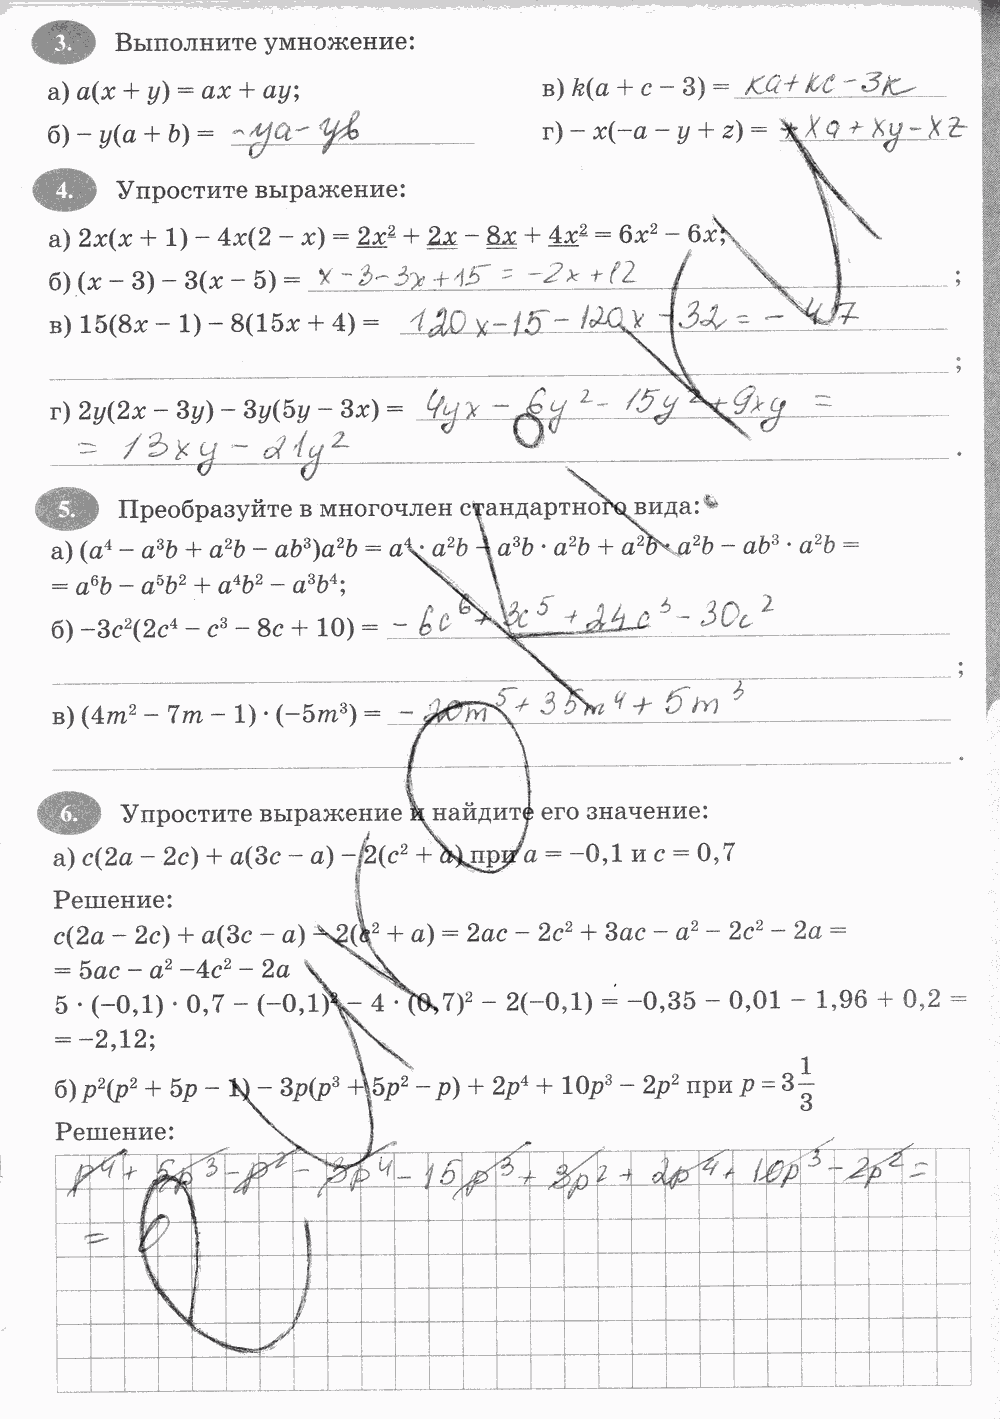 3. Выполните умножение:
а) a(x + y) = ax + ay;
в) k(a + c − 3) = ка + кс − 3к
б) − y(a + b) = −ya − yb
г) − x(−a − y + z) = + xa + xy − xz
4. Упростите выражение:
а) 2x(x + 1) − 4x(2 − x) = 2x² + 2x − 8x + 4x² = 6x² − 6x;
б) (x − 3) − 3(x − 5) = x − 3 − 3x + 15 = −2x + 12 ;
в) 15(8x − 1) − 8(15x + 4) = 120x − 15 − 120x − 32 = − 47
;
г) 2y(2x − 3y) − 3y(5y − 3x) = 4yx − 6y² − 15y² + 9xy =
= 13xy − 21y² .
5. Преобразуйте в многочлен стандартного вида:
а) (a⁴ − a³b + a²b − ab³)a²b = a⁴ · a²b − a³b · a²b + a²b · a²b − ab³ · a²b =
= a⁶b − a⁵b² + a⁴b² − a³b⁴;
б) −3c²(2c⁴ − c³ − 8c + 10) = − 6c⁶ + 3c⁵ + 24c³ − 30c²
;
в) (4m² − 7m − 1) · (−5m³) = − 20m⁵ + 35m⁴ + 5m³
.
6. Упростите выражение и найдите его значение:
а) c(2a − 2c) + a(3c − a) − 2(c² + a) при a = −0,1 и c = 0,7
Решение:
c(2a − 2c) + a(3c − a) − 2(c² + a) = 2ac − 2c² + 3ac − a² − 2c² − 2a =
= 5ac − a² −4c² − 2a
5 · (−0,1) · 0,7 − (−0,1)² − 4 · (0,7)² − 2(−0,1) = −0,35 − 0,01 − 1,96 + 0,2 =
= −2,12;
б) p²(p² + 5p − 1) − 3p(p³ + 5p² − p) + 2p⁴ + 10p³ − 2p² при p = 3 1/3
Решение:
p⁴ + 5p³ − p² − 3p⁴ − 15p³ + 3p² + 2p⁴ + 10p³ − 2p² =
= 0